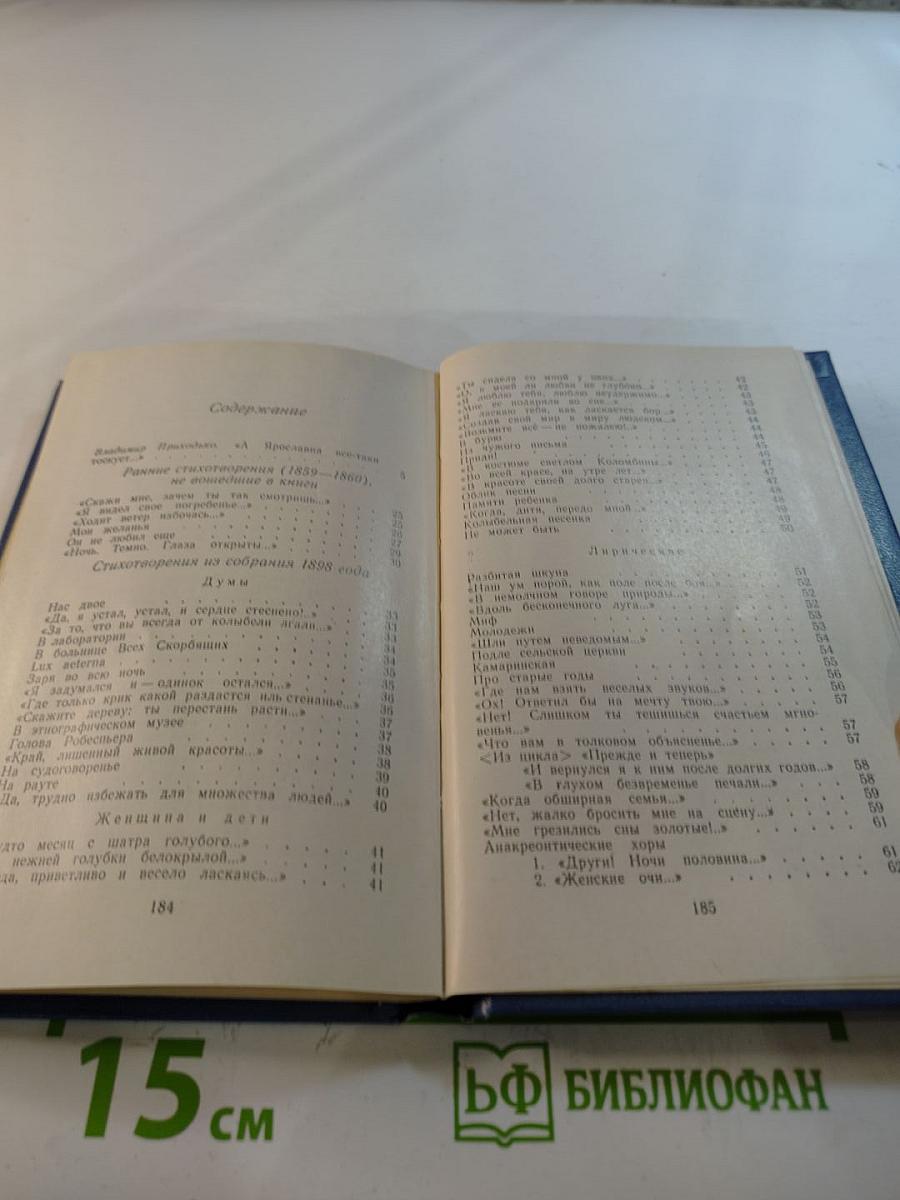 Содержание
Владимир Приходько. «А Ярославна все-таки
тоскует...» 5
Ранние стихотворения (1859—1860),
не вошедшие в книги
«Скажи мне, зачем ты так смотришь...» 25
«Я видел свое погребенье...» 25
«Ходит ветер избочась...» 26
Мои желанья 27
Он не любил еще 29
«Ночь. Темно. Глаза открыты...» 30
Стихотворения из собрания 1898 года
Думы
Нас двое 33
«Да, я устал, устал, и сердце стеснено!..» 33
«За то, что вы всегда от колыбели лгали...» 33
В лаборатории 34
В больнице Всех Скорбящих 34
Lux aeterna 35
Заря во всю ночь 35
«Я задумался и — одинок остался...» 36
«Где только крик какой раздастся иль стенанье...» 36
«Скажите дереву: ты перестань расти...» 37
В этнографическом музее 37
Голова Робеспьера 38
«Край, лишенный живой красоты...» 38
На судоговоренье 39
На рауте 40
Да, трудно избежать для множества людей...» 40
Женщина и дети
удто месяц с шатра голубого...» 41
нежней голубки белокрылой...» 41
да, приветливо и весело ласкаясь...» 41
184
«Ты сидела со мной у окна...» 42
«О, в моей ли любви не глубоко...» 42
«Я люблю тебя, люблю неудержимо...» 43
«Мне ее подарили во сне...» 43
«Я ласкаю тебя, как ласкается бор...» 43
«Создав свой мир в миру людском...» 44
«Возьмите всё — не пожалею!..» 44
В бурю 44
Из чужого письма 45
Приди! 46
«В костюме светлом Коломбины...» 46
«Во всей красе, на утре лет...» 47
«В красоте своей долго старея...» 47
Облик песни 48
Памяти ребенка 48
«Когда, дитя, передо мной...» 49
Колыбельная песенка 49
Не может быть 50
Лирические
Разбитая шкуна 51
«Наш ум порой, как поле после боя...» 52
«В немолчном говоре природы...» 52
«Вдоль бесконечного луга...» 52
Миф 53
Молодежи 53
«Шли путем неведомым...» 54
Подле сельской церкви 54
Камаринская 55
Про старые годы 56
«Где нам взять веселых звуков...» 56
«Ох! Ответил бы на мечту твою...» 57
«Нет! Слишком ты тешишься счастьем мгно-
венья...» 57
«Что вам в толковом объясненье...» 57
<Из цикла> «Прежде и теперь»
«И вернулся я к ним после долгих годов...» 58
«В глухом безвременье печали...» 58
«Когда обширная семья...» 59
«Нет, жалко бросить мне на сцену...» 59
«Мне грезились сны золотые!..» 61
Анакреонтические хоры
1. «Други! Ночи половина...» 61
2. «Женские очи...» 62
185
15 см
БФ БИБЛИОФАН